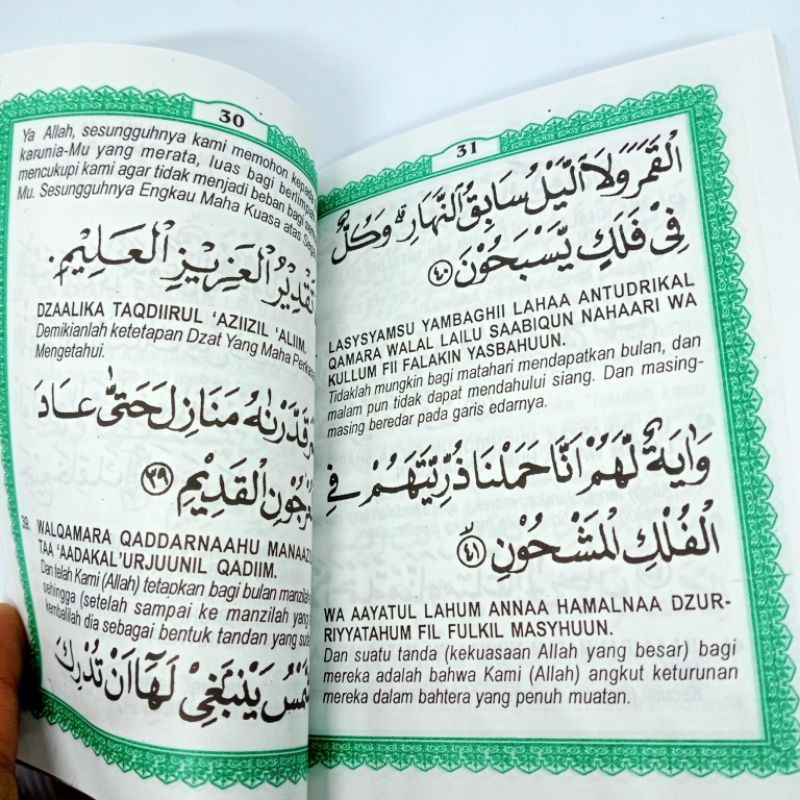 30
Ya Allah, sesungguhnya kami memohon kepada
karunia-Mu yang merata, luas bagi berlimpah
mencukupi kami agar tidak menjadi beban bagi
Mu. Sesungguhnya Engkau Maha Kuasa atas
تَقْدِيْرُ الْعَزِيْزِ الْعَلِيْمِ.
DZAALIKA TAQDIIRUL 'AZIIZIL 'ALIIM.
Demikianlah ketetapan Dzat Yang Maha
Mengetahui.
قَدَّرْنٰهُ مَنَازِلَ حَتّٰى عَادَ
الْقَدِيْمِ ٣٩
39. WALQAMARA QADDARNAAHU
TAA 'AADAKAL'URJUUNIL QADIIM.
Dan telah Kami (Allah) tetapkan bagi bulan
sehingga (setelah sampai ke manzilah yang
kembalilah dia sebagai bentuk tandan yang
يَنْۢبَغِيْ لَهَآ اَنْ تُدْرِكَ
31
الْقَمَرَ وَلَا الَّيْلُ سَابِقُ النَّهَارِ ۗ وَكُلٌّ
فِيْ فَلَكٍ يَّسْبَحُوْنَ ٤٠
LASYSYAMSU YAMBAGHII LAHAA ANTUDRIKAL
QAMARA WALAL LAILU SAABIQUN NAHAARI WA
KULLUM FII FALAKIN YASBAHUUN.
Tidaklah mungkin bagi matahari mendapatkan bulan, dan
malam pun tidak dapat mendahului siang. Dan masing-
masing beredar pada garis edarnya.
وَاٰيَةٌ لَّهُمْ اَنَّا حَمَلْنَا ذُرِّيَّتَهُمْ فِى
الْفُلْكِ الْمَشْحُوْنِ ٤١
WA AAYATUL LAHUM ANNAA HAMALNAA DZUR-
RIYYATAHUM FIL FULKIL MASYHUUN.
Dan suatu tanda (kekuasaan Allah yang besar) bagi
mereka adalah bahwa Kami (Allah) angkut keturunan
mereka dalam bahtera yang penuh muatan.